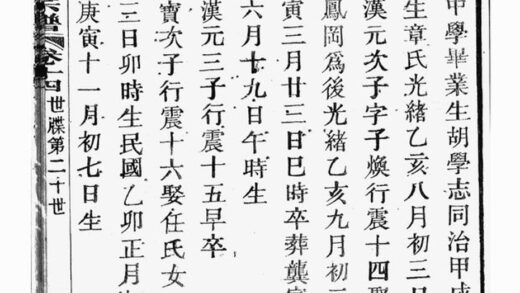 中學畢業生胡學志同治甲戌
生章氏光緒乙亥八月初三日
漢元次子字子煥行震十四娶
鳳岡爲後光緒乙亥九月初
寅三月廿三日巳時卒葬龔家
六月十九日午時生
漢元三子行震十五早卒
寶次子行震十六娶任氏女
三日卯時生民國乙卯正月
庚寅十一月初七日生
宗譜 卷十四 世牒第二十世